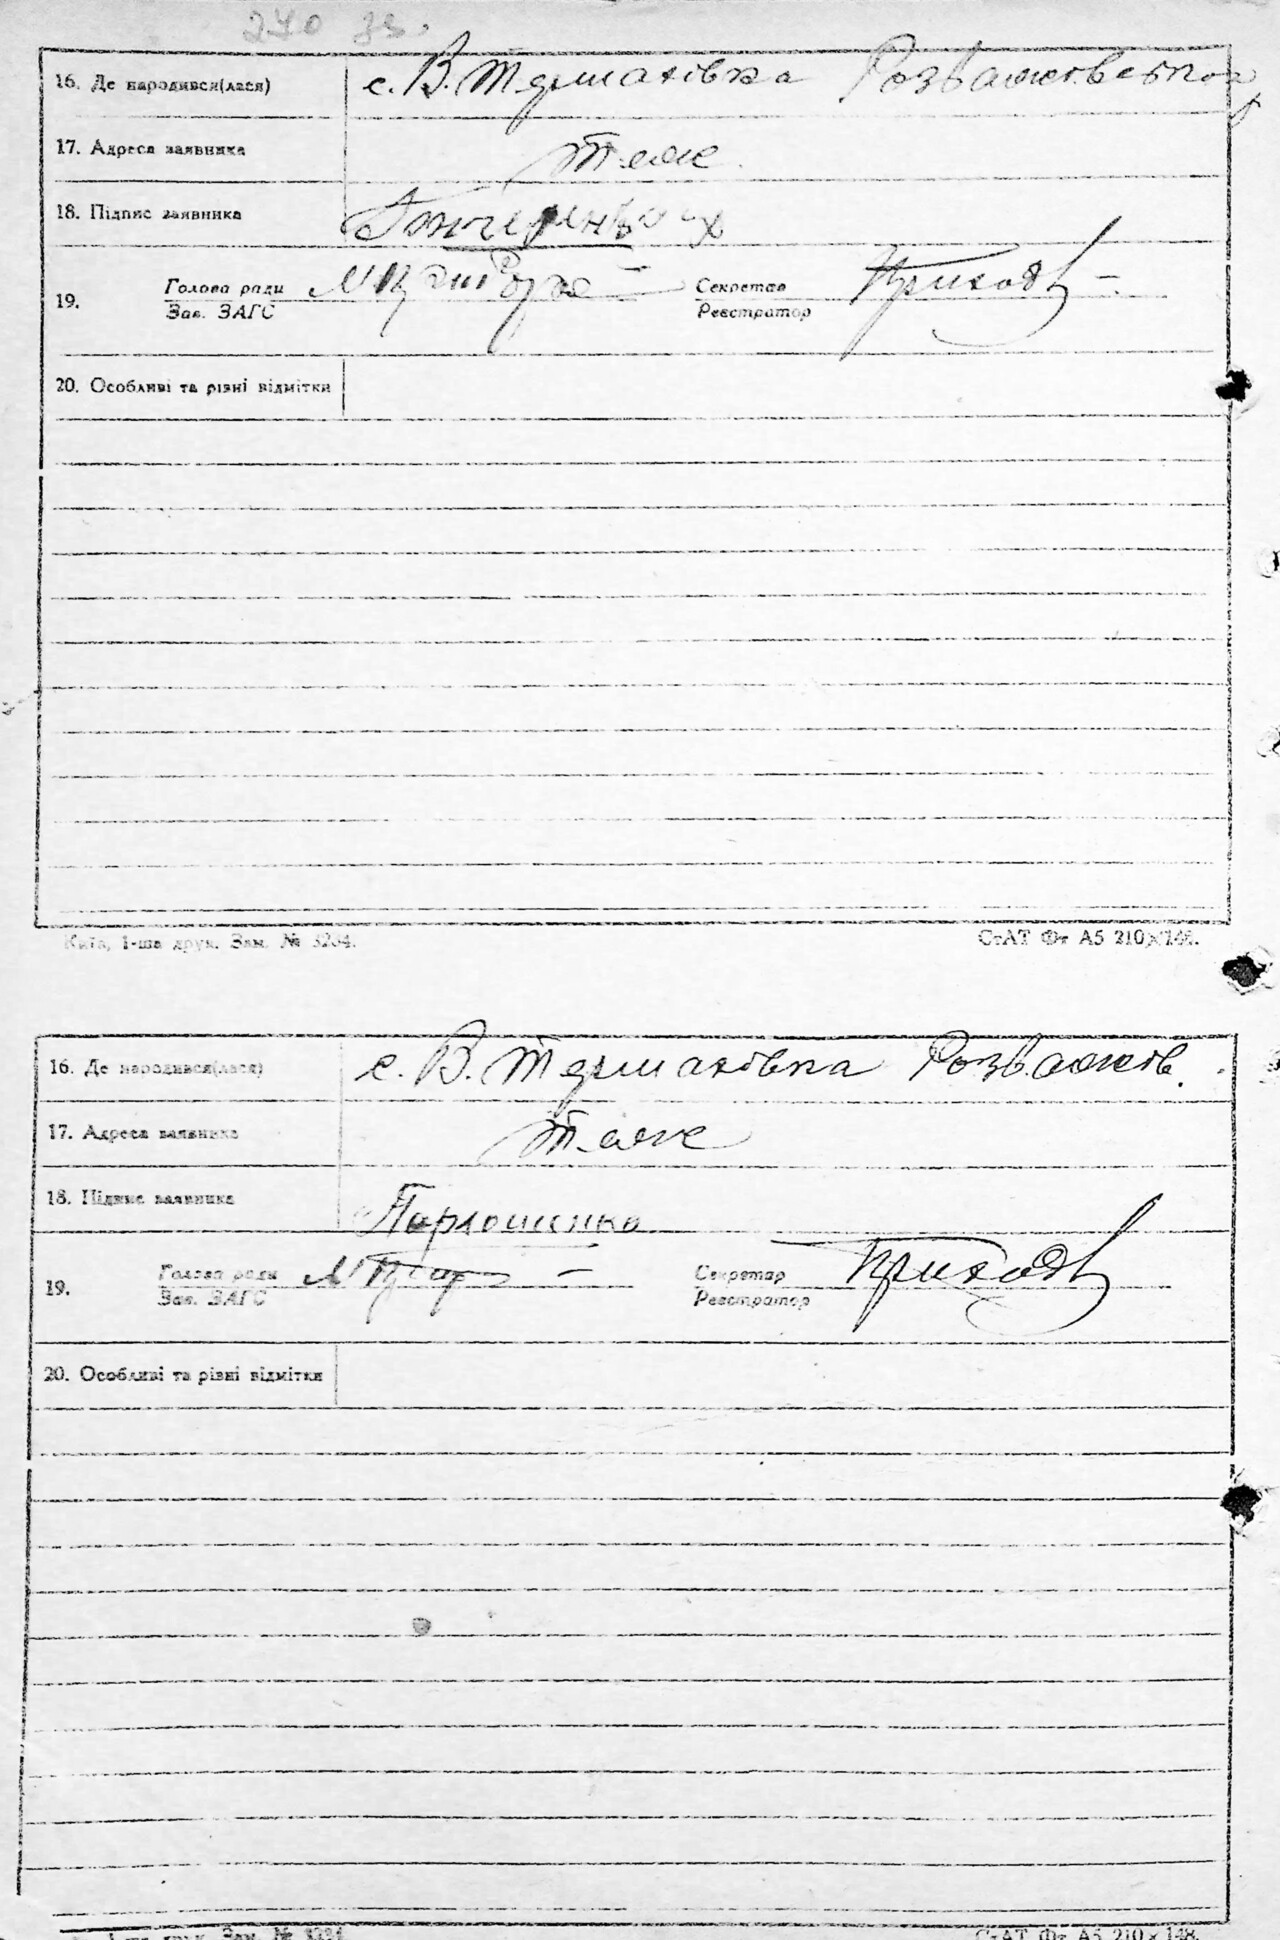 270 зв.
16. Де народився(лася) с. В. Термахівка Розважівського
17. Адреса заявника Теж
18. Підпис заявника
19. Голова ради Секретар Приходь
Зав. ЗАГС Реєстратор
20. Особливі та різні відмітки
Київ, 1-ша друк. Зам. № 3234. СтАТ Фт А5 210×148.
16. Де народився(лася) с. В. Термахівка Розважів.
17. Адреса заявника Теж
18. Підпис заявника
19. Голова ради Секретар Приходь
Зав. ЗАГС Реєстратор
20. Особливі та різні відмітки
1-ша друк. Зам. № 3234 СтАТ Фт А5 210×148.